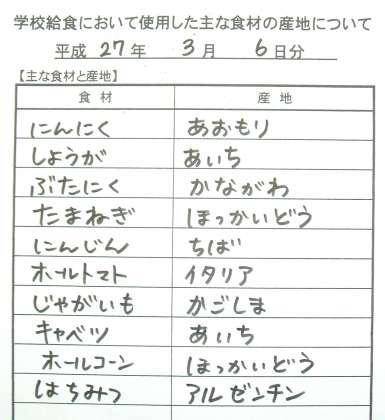 学校給食において使用した主な食材の産地について
平成 27 年 3 月 6 日分
【主な食材と産地】
食 材 産 地
にんにく あおもり
しょうが あいち
ぶたにく かながわ
たまねぎ ほっかいどう
にんじん ちば
ホールトマト イタリア
じゃがいも かごしま
キャベツ あいち
ホールコーン ほっかいどう
はちみつ アルゼンチン